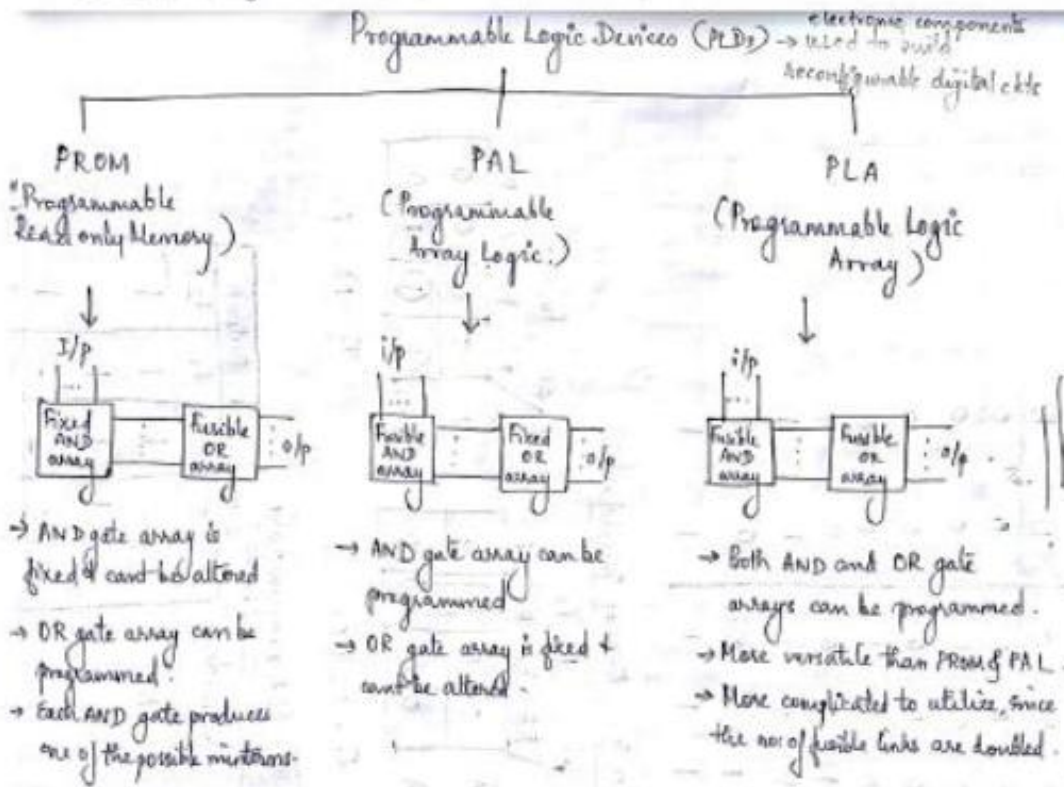 Programmable Logic Devices (PLDs) → electronic components
used to build
reconfigurable digital ckts
PROM
(Programmable
Read only Memory)
I/p
Fixed
AND
array
Fusible
OR
array
o/p
→ AND gate array is
fixed & cant be altered
→ OR gate array can be
programmed.
→ Each AND gate produces
one of the possible minterms.
PAL
(Programmable
Array Logic.)
i/p
Fusible
AND
array
Fixed
OR
array
o/p
→ AND gate array can be
programmed
→ OR gate array is fixed &
cant be altered.
PLA
(Programmable Logic
Array)
i/p
Fusible
AND
array
Fusible
OR
array
o/p
→ Both AND and OR gate
arrays can be programmed.
→ More versatile than PROM & PAL.
→ More complicated to utilize, since
the no: of fusible links are doubled.